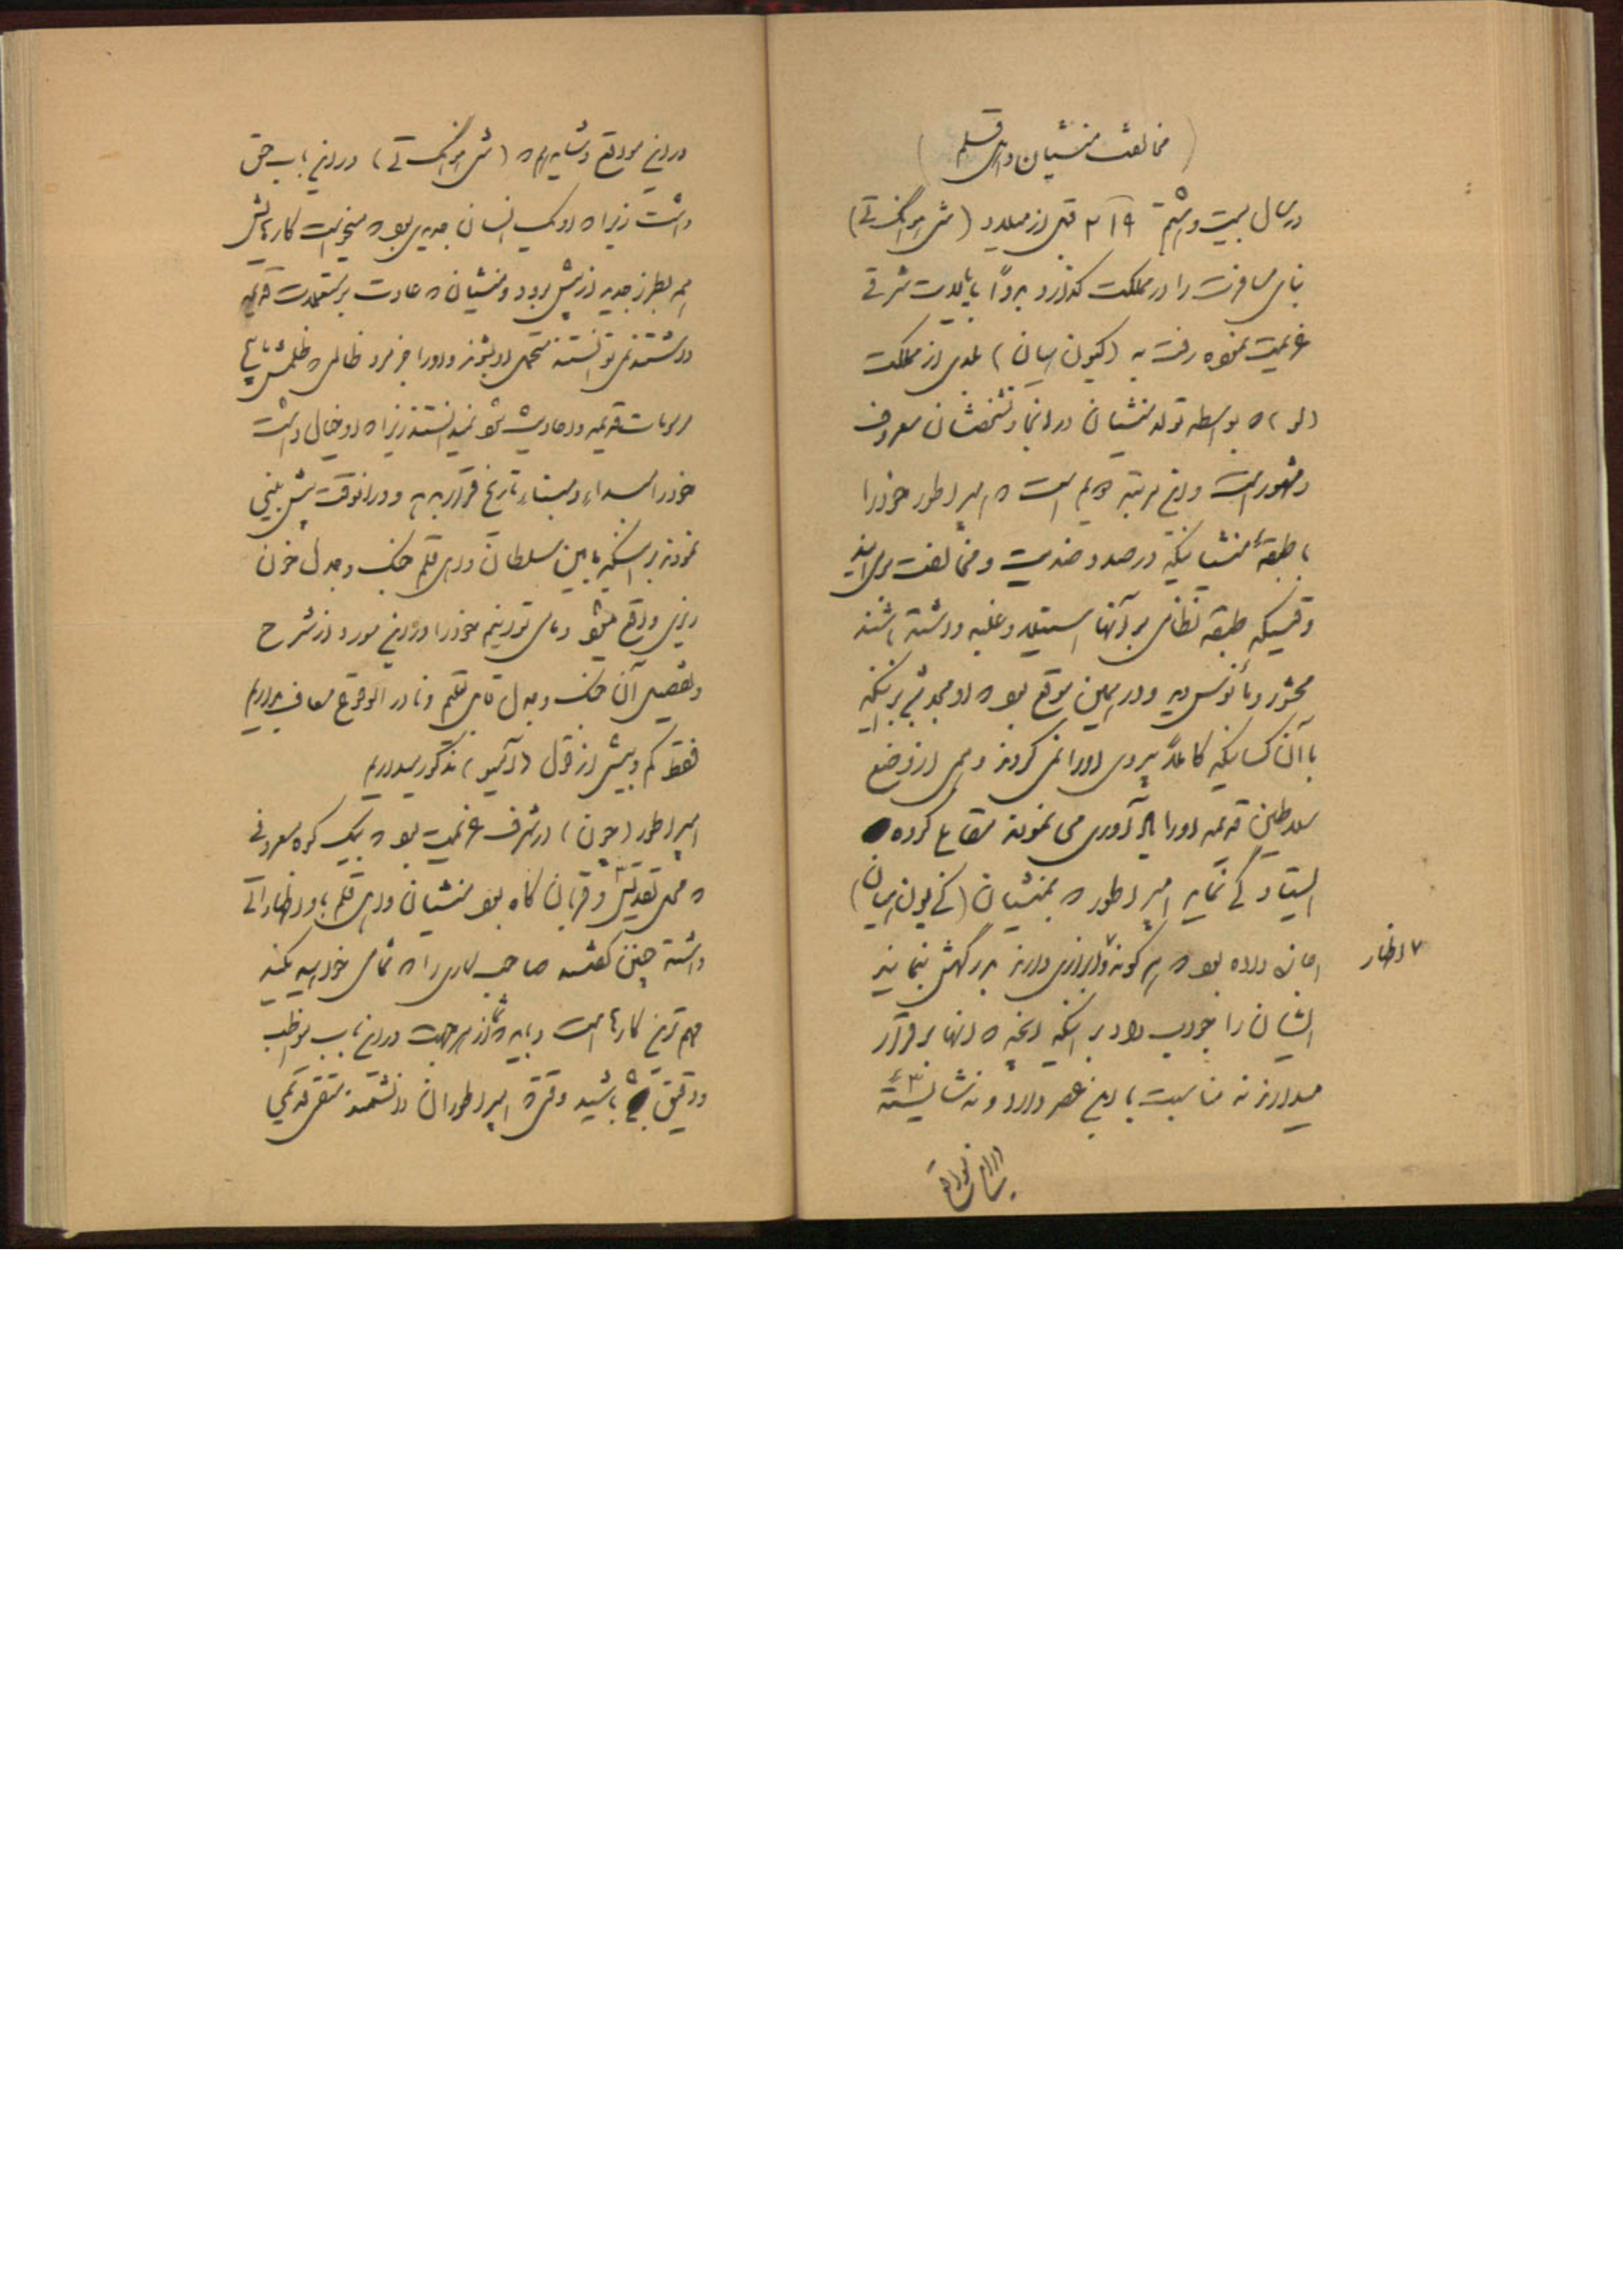 (مخالفت منشیان و اهل قلم)
در سال بیست و هشتم ۲۱۹ قبل از میلاد (شی هوانگ تی)
بنای مسافرت را در مملکت گذارد بدواً به ایالات شرقی
عزیمت نموده رفت به (کیون سیان) بلدی از مملکت
(لو) که بواسطه تولد منشیان در آنجا و تشخصشان معروف
و مشهور است و این مرتبه دویم است که امپراطور خود را
با طبقهٔ منشیانیکه در صدد ضدیت و مخالفت
وقتیکه طبقه نظامی بر آنها استیلا و غلبه داشته باشند
محشور و مأنوس دید و در همین موقع بود که او مجبور شد بر اینکه
با آن کسانیکه کاملاً پیروی او را نمی کردند و همی از وضع
سلاطین قدیمه او را یادآوری می نمودند
ایستادگی نماید امپراطور که بمنشیان (کی یون سیان)
اجازه داده بود که هر گونه ابرازی دارند بدرگهش بنمایند
۷ اظهار
ایشان را جواب داد بر اینکه آنچه که آنها برقرار
میدارند نه مناسبت با این عصر دارد و نه شایسته
در این مواقع
در این موقع و شاید هم که (شی هوانگ تی) در این باب حق
داشت زیرا که او یک انسان جدیدی بود که میخواست کارهایش
هم بطرز جدید از پیش برود و منشیان که عادت بر استعمالات قدیمه
داشتند نمی توانستند متحمل او بشوند و او را جز مرد ظالمی که ظلمش
قدیمه و عادیه شود نمیدانستند زیرا که او خیال داشت
خود را مبداء و مبناء تاریخ قرار بدهد و در آنوقت پیش بینی
نمودند بر اینکه مابین سلطان و اهل قلم جنگ و جدل خون
ریزی واقع میشود و ما می توانیم خود را در این مورد از شرح
و تفصیل آن جنگ و جدل نادر الوقوع معاف بداریم
فقط کم و بیش از قول (آمیو) مذکور میداریم
امپراطور (چون) در شرف عزیمت بود که بیک کوه معروفی
که محل تقدیس و قربان گاه بود منشیان و اهل قلم باو اظهاراتی
داشته چنین گفتند صاحب کاری را که شما می خواهید بکنید
مهم ترین کارها است و باید که شما از هر جهت در این باب مواظب
و دقیق باشید وقتی که امپراطوران دانشمند متفرقه قدیمی